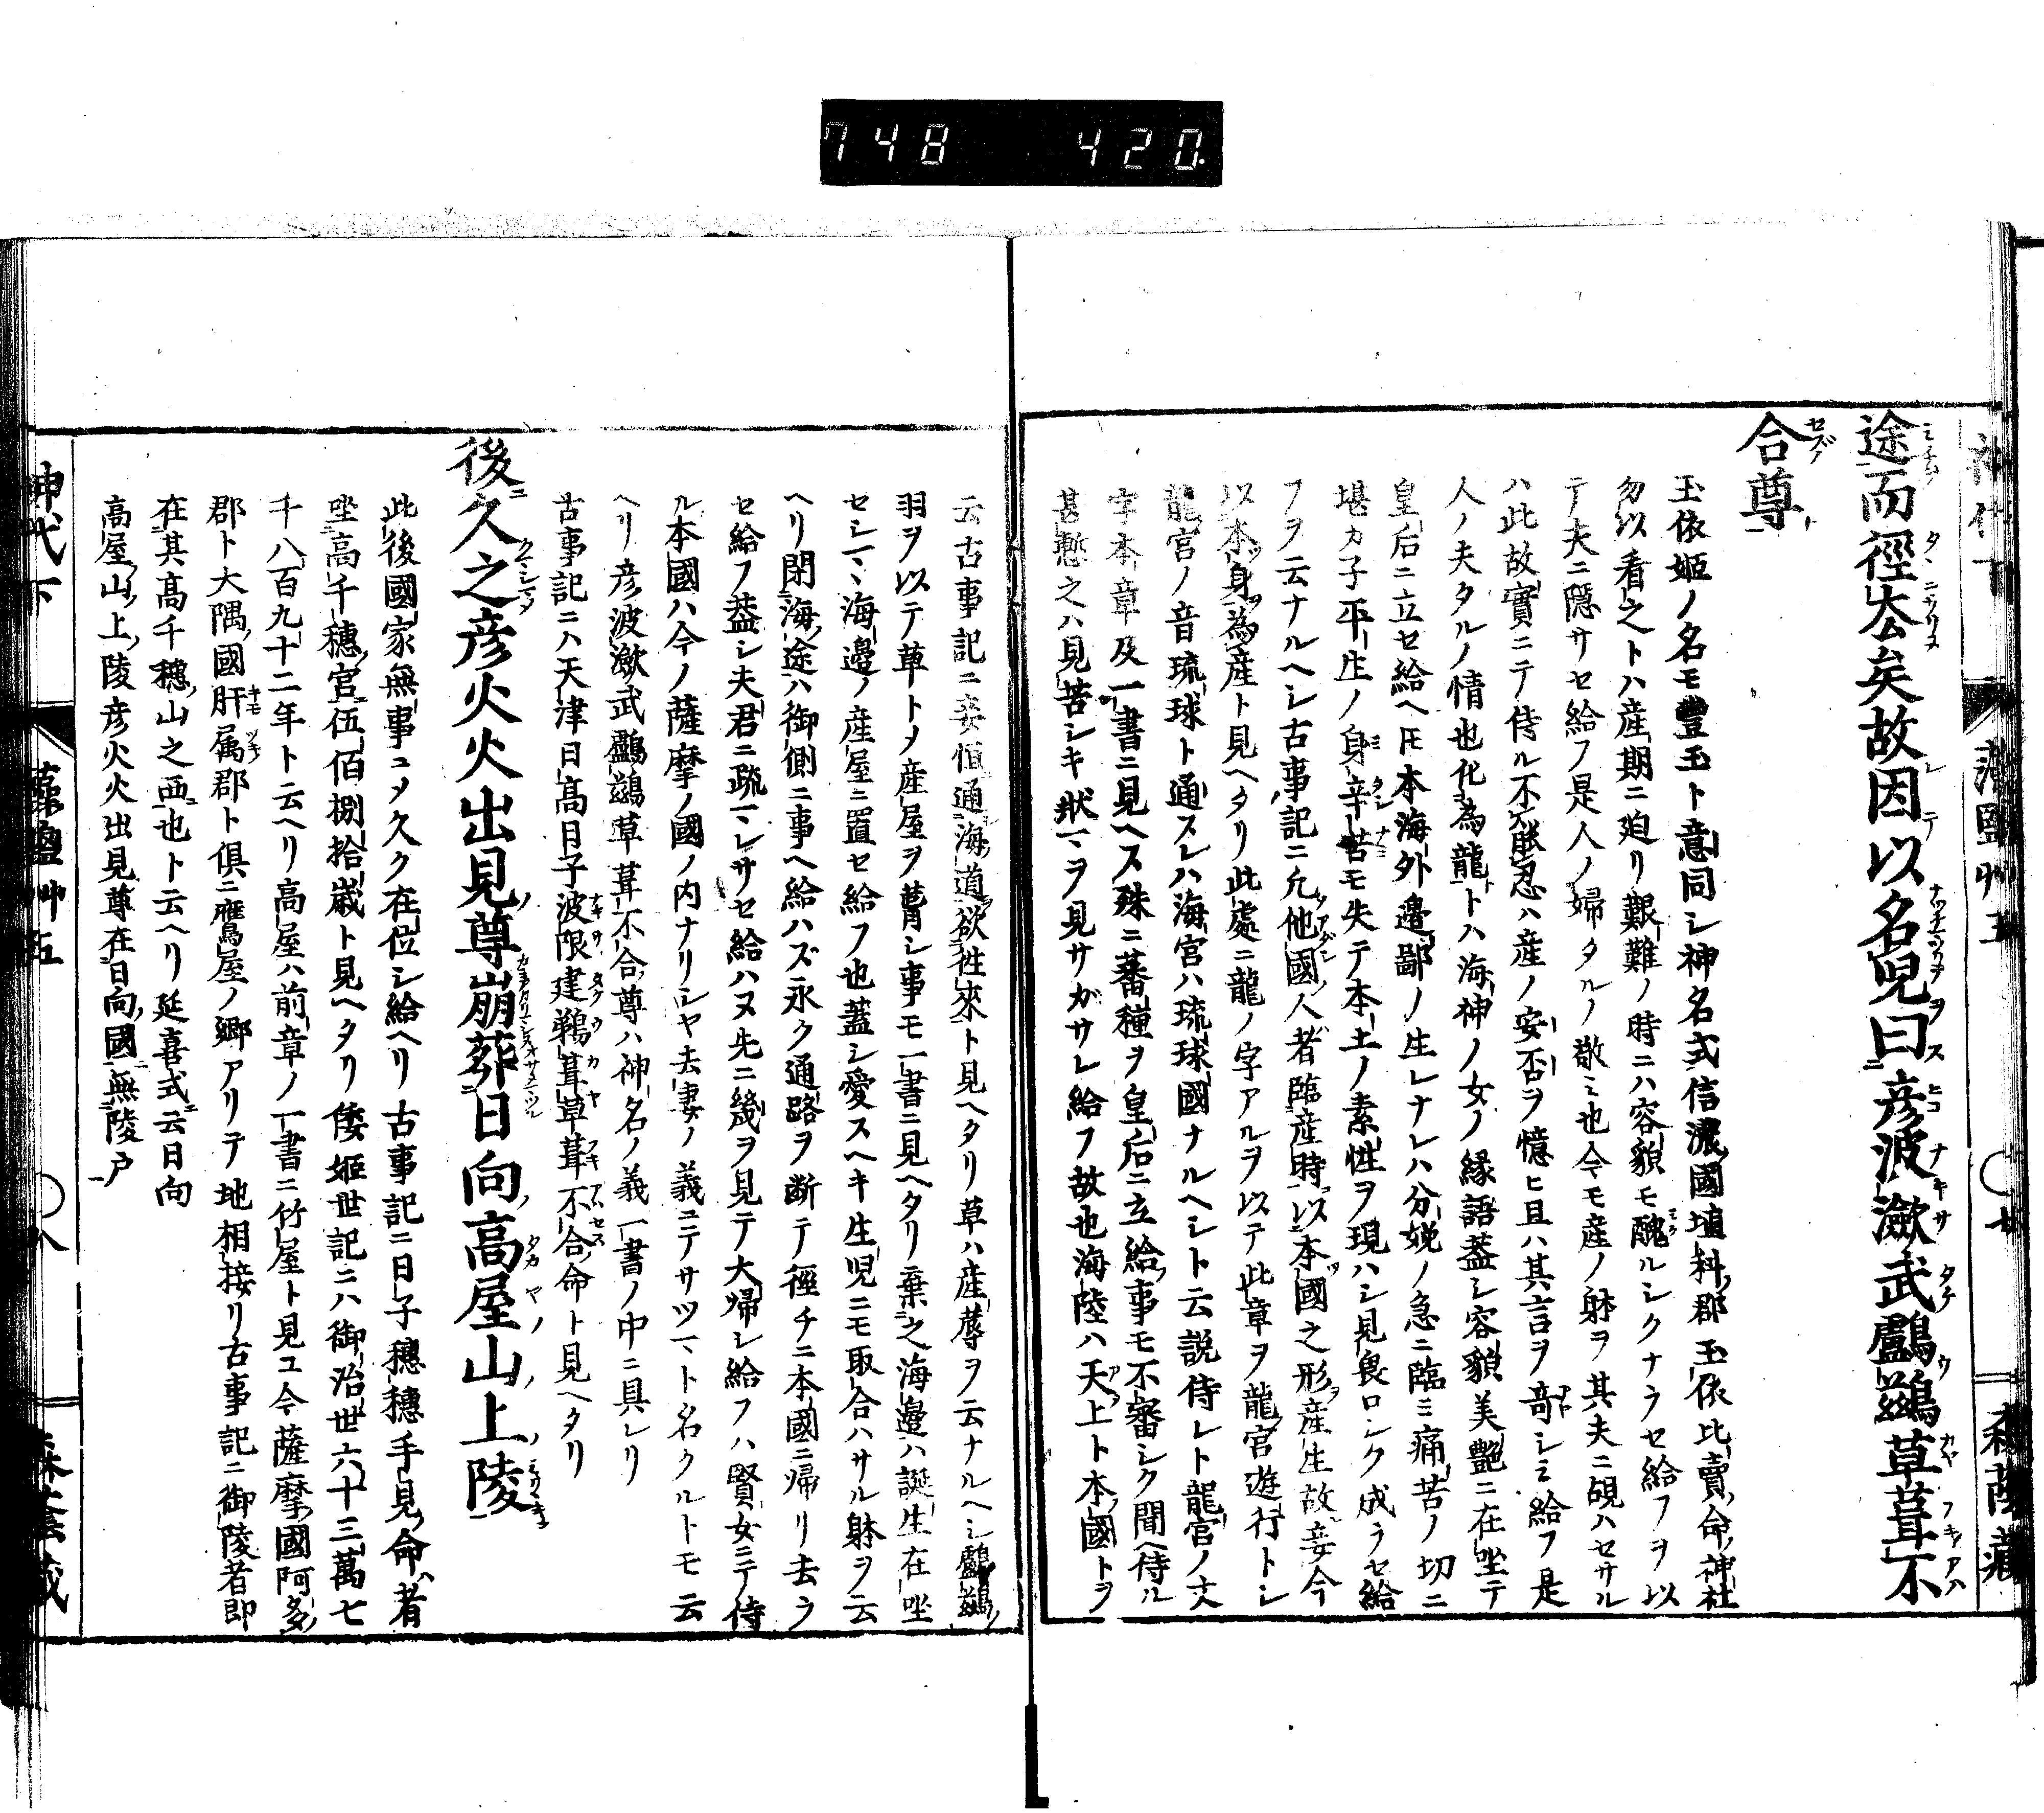 748 420
途而徑去矣故因以名兒曰彦波瀲武鸕鷀草葺不
合尊
玉依姫ノ名モ豐玉ト意同シ神名式信濃國埴科郡玉依比賣命神社
勿以看之トハ産期ニ廹リ艱難ノ時ニハ容貌モ醜ルシクナラセ給フヲ以
テ夫ニ隱サセ給フ是人ノ婦タルノ敬ミ也今モ産ノ躰ヲ其夫ニ硯ハセサル
ハ此故實ニテ侍ル不忍ハ産ノ安否ヲ憶ヒ且ハ其言ヲ竒シミ給フ是
人ノ夫タルノ情也化為龍トハ海神ノ女ノ縁語葢シ容貌美艶ニ在坐テ
皇后ニ立セ給ヘ𪜈本海外邉鄙ノ生レナレハ分娩ノ急ニ臨ミ痛苦ノ切ニ
堪カ子平生ノ身辛苦モ失テ本土ノ素性ヲ現ハシ見良ロシク成ラセ給
フヲ云ナルヘシ古事記ニ允他國人者臨産時以本國之形産生故妾今
以本身為産ト見ヘタリ此處ニ龍ノ字アルヲ以テ此章ヲ龍宮遊行トシ
龍宮ノ音琉球ト通スレハ海宮ハ琉球國ナルヘシト云説侍レト龍宮ノ文
字本章及一書ニ見ヘス殊ニ蕃種ヲ皇后ニ立給事モ不審シク聞ヘ侍ル
甚慙之ハ見苦シキ狀ヲ見サガサレ給フ故也海陸ハ天上ト本國トヲ
云古事記ニ妾恒通海道欲徃來ト見ヘタリ草ハ産蓐ヲ云ナルヘシ鸕鷀
羽ヲ以テ草トメ産屋ヲ葺シ事モ一書ニ見ヘタリ棄之海邉ハ誕生在坐
セシマヽ海邉ノ産屋ニ置セ給フ也蓋シ愛スヘキ生児ニモ取合ハサル躰ヲ云
ヘリ閉海途ハ御側ニ事ヘ給ハズ永ク通路ヲ断テ徑チニ本國ニ帰リ去ラ
セ給フ葢シ夫君ニ疏マレサセ給ハヌ先ニ幾ヲ見テ大歸シ給フハ賢女ニテ侍
ル本國ハ今ノ薩摩ノ國ノ内ナリシヤ去妻ノ義ニテサツマト名クルトモ云
ヘリ彦波瀲武鸕鷀草葺不合尊ハ神名ノ義一書ノ中ニ具レリ
古事記ニハ天津日髙日子波限建鵜葺草葺不合命ト見ヘタリ
後久之彦火火出見尊崩葬日向高屋山上陵
此後國家無事ニメ久ク在位シ給ヘリ古事記ニ日子穗穗手見命者
坐高千穗宮伍佰捌拾歳ト見ヘタリ倭姫世記ニハ御治世六十三萬七
千八百九十二年ト云ヘリ高屋ハ前章ノ一書ニ竹屋ト見ユ今薩摩國阿多
郡ト大隅國肝属郡ト俱ニ鷹屋ノ郷アリテ地相接リ古事記ニ御陵者即
在其髙千穗山之西也ト云ヘリ延喜式云日向
高屋山上陵彦火火出見尊在日向國無陵戸
神代下 藻鹽艸五 八